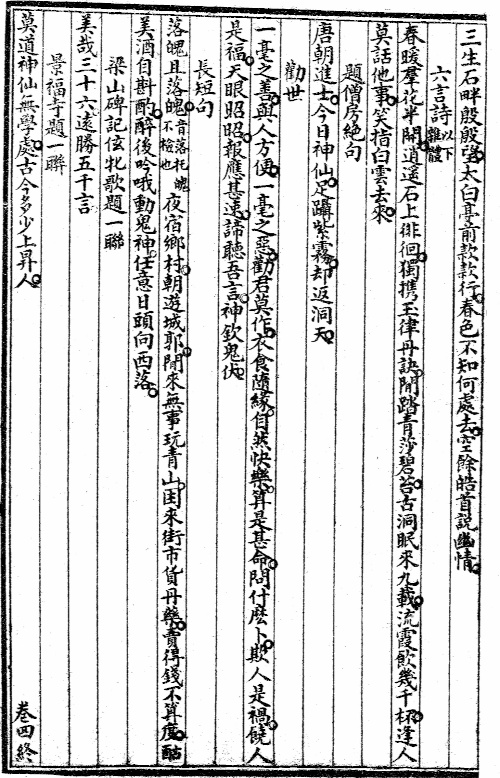 三生石畔殷殷望。太白亭前款款行。春色不知何處去。空餘皓首說幽情。
六言詩 以下雜體
春暖羣花半開。逍遙石上徘徊。獨携玉律丹訣。閒踏青莎碧苔。古洞眠來九載。流霞飲幾千杯。逢人
莫話他事。笑指白雲去來。
題僧房絕句
唐朝進士。今日神仙。足躡紫霧。却返洞天。
勸世
一毫之善。與人方便。一毫之惡。勸君莫作。衣食隨緣。自然快樂。算是甚命。問什麽卜。欺人是禍。饒人
是福。天眼昭昭。報應甚速。諦聽吾言。神欽鬼伏。
長短句
落魄且落魄。音落托魄不檢也 夜宿鄉村。朝遊城郭。閒來無事玩青山。困來街市貨丹藥。賣得錢不算度。酤
美酒自斟酌。醉後吟哦動鬼神。任意日頭向西落。
梁山碑記伭牝歌題一聯
美哉三十六遠勝五千言
景福寺題一聯
莫道神仙無學處。古今多少上昇人。
卷四終